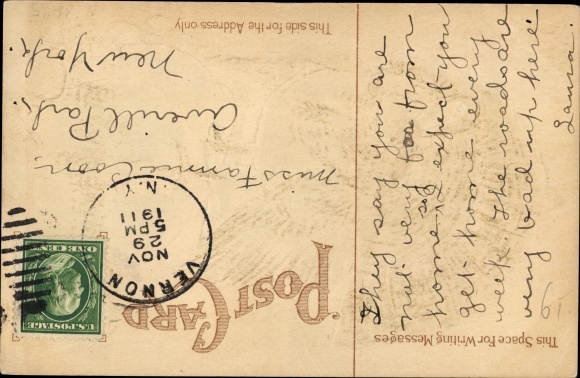 POST CARD
This Space For Writing Messages
This side for the Address only
VERNON
NOV
29
5 PM
1911
N.Y.
U.S. POSTAGE
ONE CENT
They say you are
not very far from
home so
I expect you
get home every
week. The roads are
very bad up here
Laura.
Miss Fannie Coon,
Averill Park,
New York.